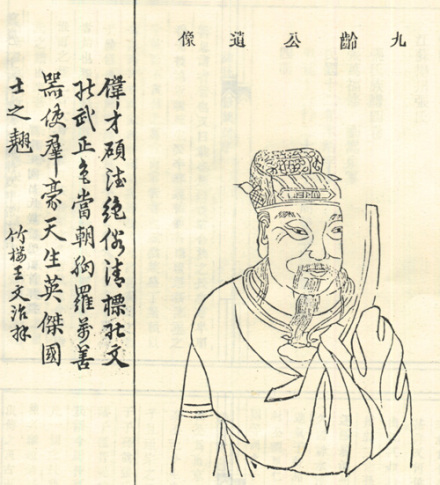 九齡公遺像
偉才碩德絕俗清標壯文
壯武正色當朝胸羅萬善
器使羣豪天生英傑國
士之翹
竹樓王文治拜